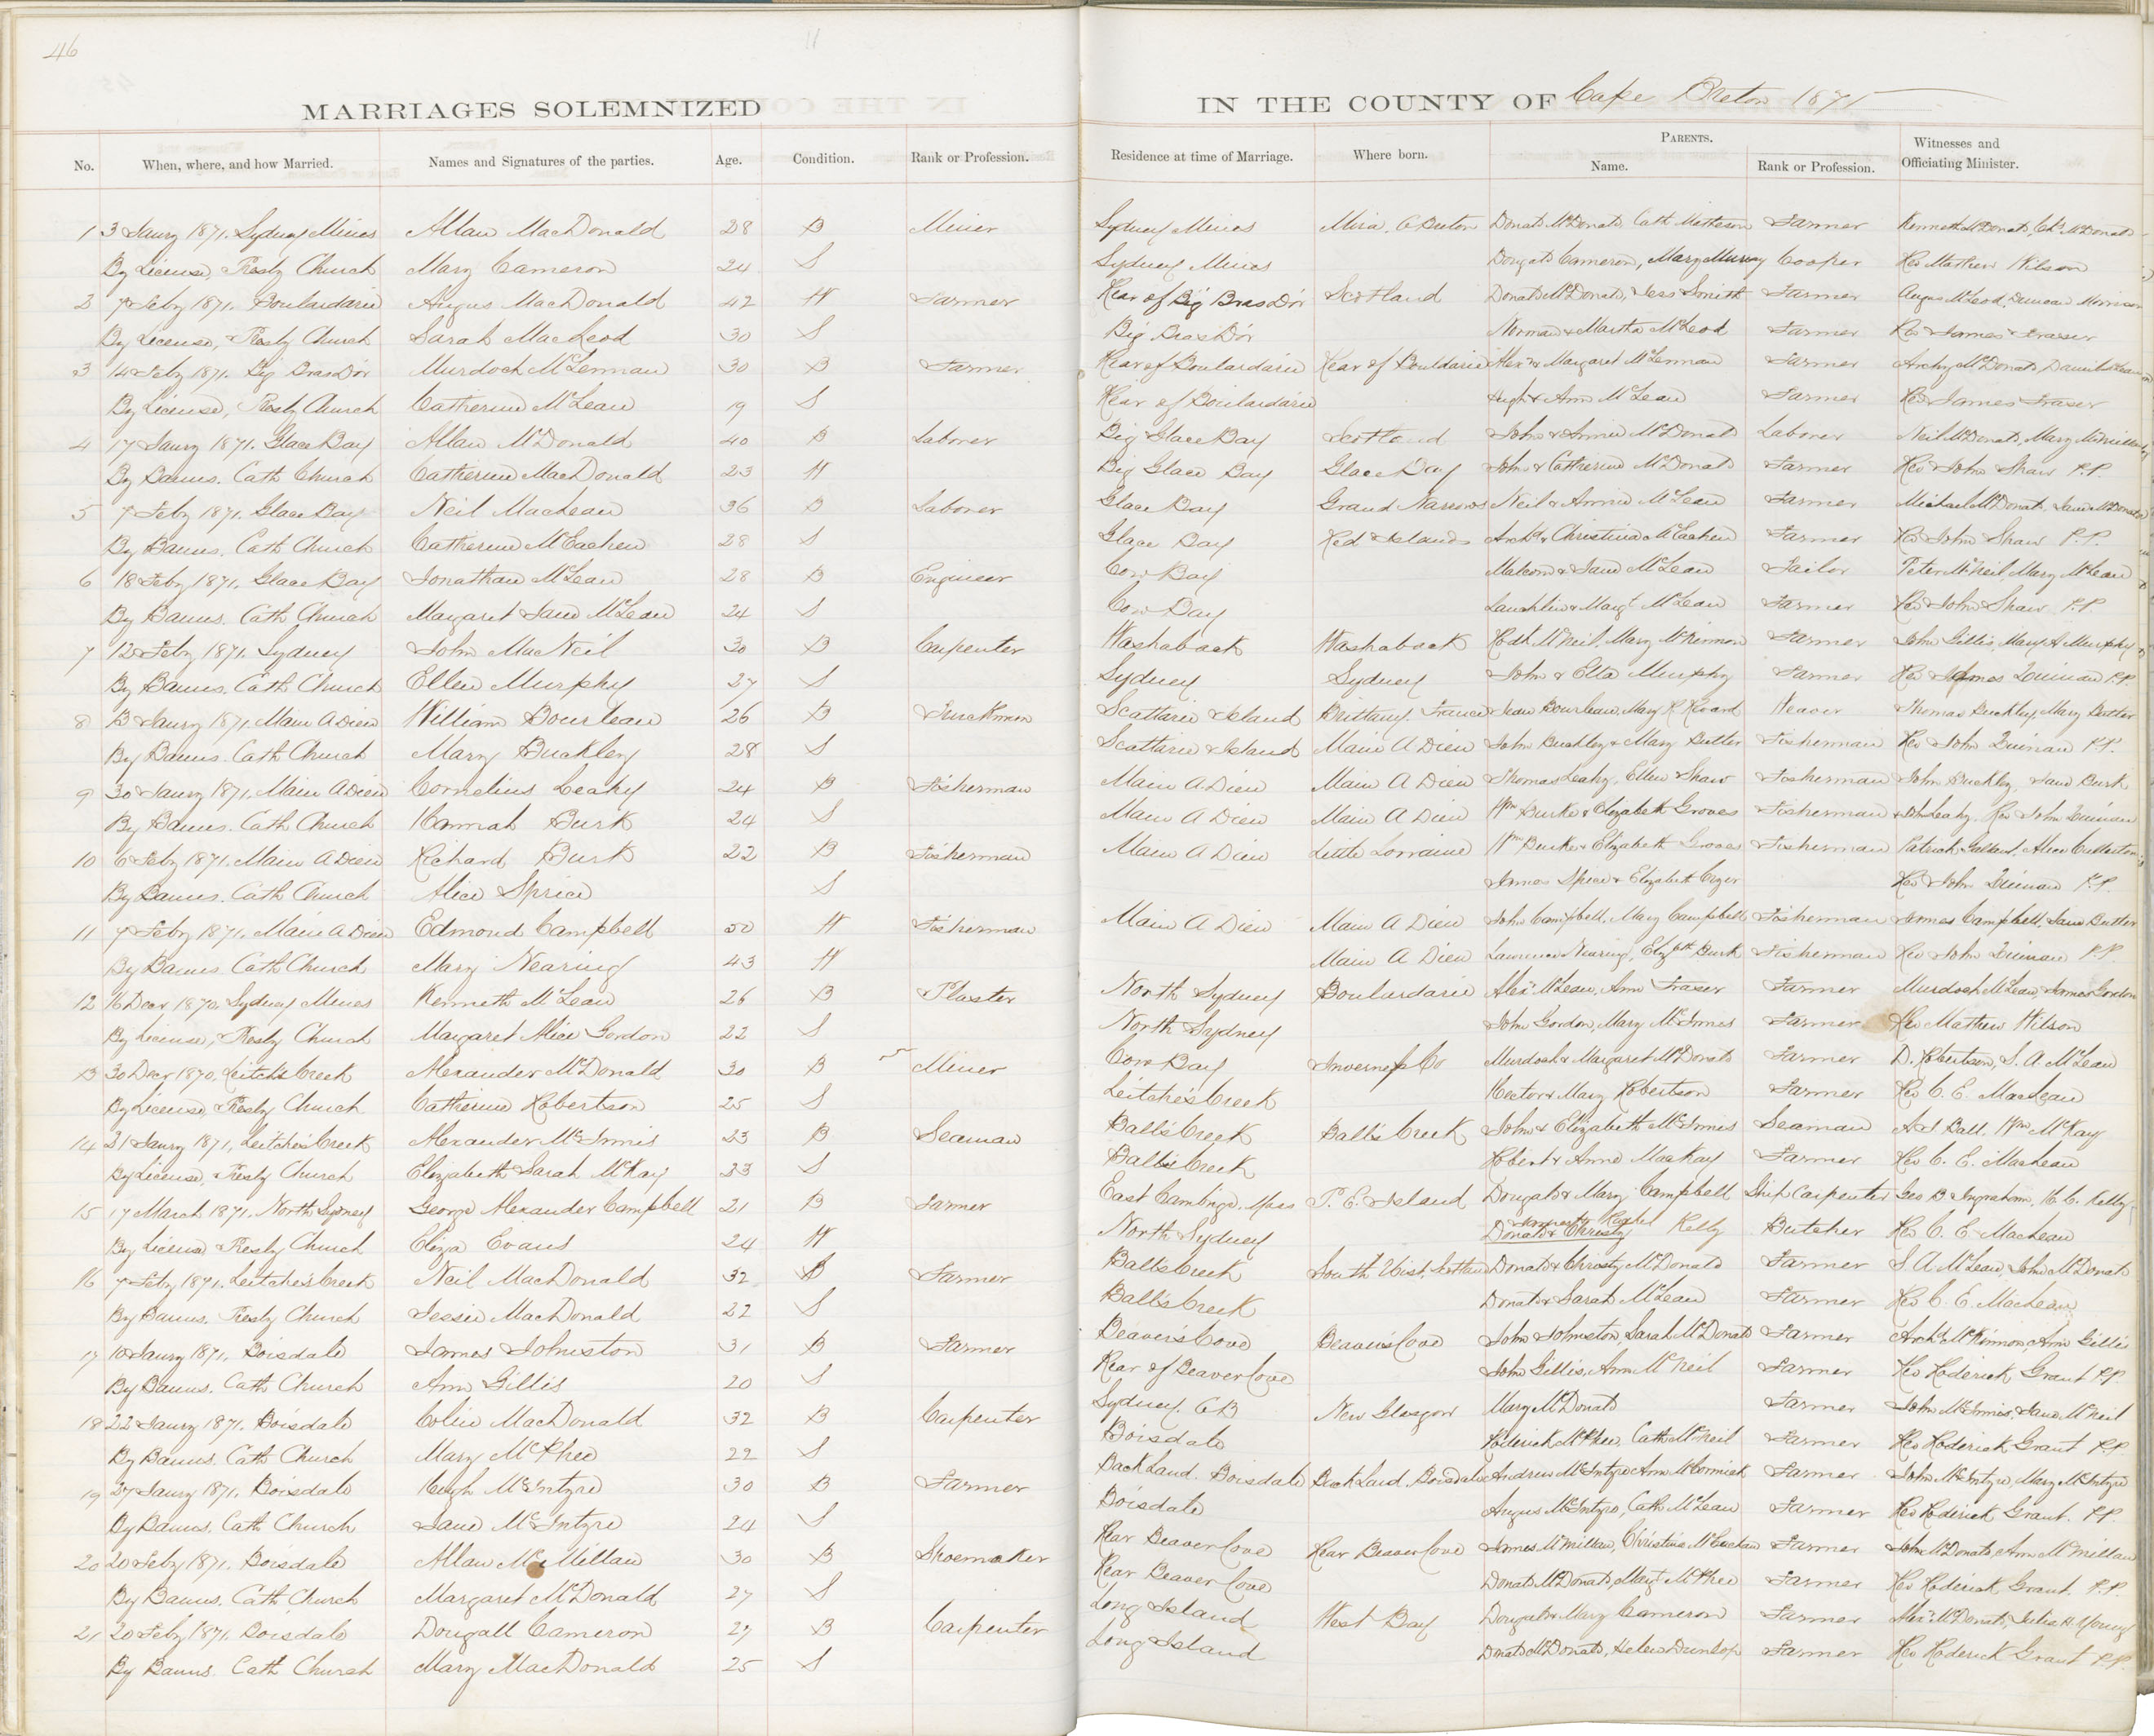 46
MARRIAGES SOLEMNIZED IN THE COUNTY OF Cape Breton 1871
No. When, where, and how Married. Names and Signatures of the parties. Age. Condition. Rank or Profession. Residence at time of Marriage. Where born. PARENTS. Name. Rank or Profession. Witnesses and Officiating Minister.
1 3 Jany 1871. Sydney Mines Allan MacDonald 28 B Miner Sydney Mines Mira, C Breton Donald McDonald, Cath Matheson Farmer Kenneth McDonald, Chs McDonald
By License, Presby Church Mary Cameron 24 S Sydney Mines Dougald Cameron, Mary Murray Cooper Rev Mathew Wilson
2 7 Feby 1871. Boulardarie Angus MacDonald 42 W Farmer Rear of Big Bras Dor Scotland Donald McDonald, Jess Smith Farmer Angus McLeod, Duncan Morrison
By License, Presby Church Sarah MacLeod 30 S Big Bras Dor Norman & Martha McLeod Farmer Rev James Fraser
3 14 Feby 1871. Big Bras Dor Murdoch McLennan 30 B Farmer Rear of Boulardarie Rear of Bouldarie Alexr & Margaret McLennan Farmer Archy McDonald, Daniel
By License, Presby Church Catherine McLean 19 S Rear of Boulardarie Hugh & Ann McLean Farmer Rev James Fraser
4 17 Jany 1871. Glace Bay Allan McDonald 40 B Laborer Big Glace Bay Scotland John & Annie McDonald Laborer Neil McDonald, Mary
By Banns. Cath Church Catherine MacDonald 23 W Big Glace Bay Glace Bay John & Catherine McDonald Farmer Rev John Shaw P.P.
5 7 Feby 1871. Glace Bay Neil MacLean 36 B Laborer Glace Bay Grand Narrows Neil & Annie McLean Farmer Michael McDonald, Jane McDonald
By Banns. Cath Church Catherine McEachen 28 S Glace Bay Red Islands Archd & Christina McEachen Farmer Rev John Shaw P.P.
6 18 Feby 1871. Glace Bay Jonathan McLean 28 B Engineer Cow Bay Malcom & Jane McLean Tailor Peter McNeil, Mary McLean
By Banns. Cath Church Margaret Jane McLean 24 S Cow Bay Lauchlin & Margt McLean Farmer Rev John Shaw P.P.
7 12 Feby 1871. Sydney John MacNeil 30 B Carpenter Washaback Washaback Rodk McNeil, Mary McKinnon Farmer John Gillis, Mary A Murphy
By Banns. Cath Church Ellen Murphy 27 S Sydney Sydney John & Ella Murphy Farmer Rev James Quinan P.P.
8 13 Jany 1871. Main A Dieu William Bourleau 26 B Truckman Scattarie Island Brittany. France Jean Bourleau, Mary R Revard Weaver Thomas Buckley, Mary Butler
By Banns. Cath Church Mary Buckley 28 S Scattarie Island Main A Dieu John Buckley & Mary Butler Fisherman Rev John Quinan P.P.
9 30 Jany 1871. Main A Dieu Cornelius Leahy 24 B Fisherman Main A Dieu Main A Dieu Thomas Leahy, Ellen Shaw Fisherman John Buckley, Jane Burk
By Banns. Cath Church Hannah Burk 24 S Main A Dieu Main A Dieu Wm Burke & Elizabeth Groves Fisherman & John Leahy. Rev John Quinan
10 6 Feby 1871. Main A Dieu Richard Burk 22 B Fisherman Main A Dieu Little Lorraine Wm Burke & Elizabeth Groves Fisherman Patrick
By Banns. Cath Church Alice Sprice S James Spice & Elizabeth Rev John Quinan P.P.
11 7 Feby 1871. Main A Dieu Edmond Campbell 50 W Fisherman Main A Dieu Main A Dieu John Campbell, Mary Campbell Fisherman James Campbell, Jane Butler
By Banns Cath Church Mary Nearing 43 W Main A Dieu Lawrence Nearing, Elizbth Burk Fisherman Rev John Quinan P.P.
12 16 Decr 1870. Sydney Mines Kenneth McLean 26 B Plaster North Sydney Boulardarie Alexr McLean, Ann Fraser Farmer Murdoch McLean, James Gordon
By License, Presby Church Margaret Alice Gordon 22 S North Sydney John Gordon, Mary McInnes Farmer Rev Mathew Wilson
13 30 Decr 1870. Leitchs Creek Alexander McDonald 30 B Miner Cow Bay Inverness Co Murdoch & Margaret McDonald Farmer D. Robertson, S. A. McLean
By License Presby Church Catherine Robertson 25 S Leitche's Creek Hector & Mary Robertson Farmer Rev C. E. MacLean
14 31 Jany 1871, Leitche's Creek Alexander McInnis 23 B Seaman Ball's Creek Ball's Creek John & Elizabeth McInnes Seaman A J Ball. Wm McKay
By License, Presby Church Elizabeth Sarah McKay 23 S Ball's Creek Robert & Anne MacKay Farmer Rev C. E. MacLean
15 17 March 1871. North Sydney George Alexander Campbell 21 B Farmer East Cambrige. Mass P. E. Island Dougald & Mary Campbell Ship Carpenter Geo B Ingraham, H. C. Kelly
By License Presby Church Eliza Evans 24 W North Sydney Donald & Christy James & Rachel Kelly Butcher Rev C. E MacLean
16 7 Feby 1871. Leitche's Creek Neil MacDonald 32 B Farmer Ball's Creek South Uist, Scotland Donald & Christy McDonald Farmer S A McLean, John McDonald
By Banns. Presby Church Jessie MacDonald 22 S Ball's Creek Donald & Sarah McLean Farmer Rev C. E. MacLean
17 10 Jany 1871. Boisdale James Johnston 31 B Farmer Beaver's Cove Beaver's Cove John Johnston, Sarah McDonald Farmer Archd McKinnon, Ann Gillis
By Banns. Cath Church Ann Gillis 20 S Rear of Beaver Cove John Gillis, Ann McNeil Farmer Rev Roderick Grant P.P.
18 22 Jany 1871. Boisdale Colin MacDonald 32 B Carpenter Sydney. C B New Glasgow Mary McDonald Farmer John McInnis, Jane McNeil
By Banns. Cath Church Mary McPhee 22 S Boisdale Roderick McPhee, Cath McNeil Farmer Rev Roderick Grant P.P.
19 27 Jany 1871. Boisdale Hugh McIntyre 30 B Farmer Back Land. Boisdale Back Land. Boisdale Andrew McIntyre Ann McCormick Farmer John McIntyre, Mary McIntyre
By Banns. Cath Church Jane McIntyre 24 S Boisdale Angus McIntyre, Cath McLean Farmer Rev Roderick Grant. P.P.
20 20 Feby 1871. Boisdale Allan McMillan 30 B Shoemaker Rear Beaver Cove Rear Beaver Cove James McMillan, Christina McEachen Farmer John McDonald, Ann McMillan
By Banns. Cath Church Margaret McDonald 27 S Rear Beaver Cove Donald McDonald, Margt McPhee Farmer Rev Roderick Grant. P.P.
21 20 Feby 1871. Boisdale Dougall Cameron 27 B Carpenter Long Island West Bay Dougald & Mary Cameron Farmer Alexr McDonald, Julia H. Young
By Banns. Cath Church Mary MacDonald 25 S Long Island Donald McDonald, Helen Dunlop Farmer Rev Roderick Grant P.P.